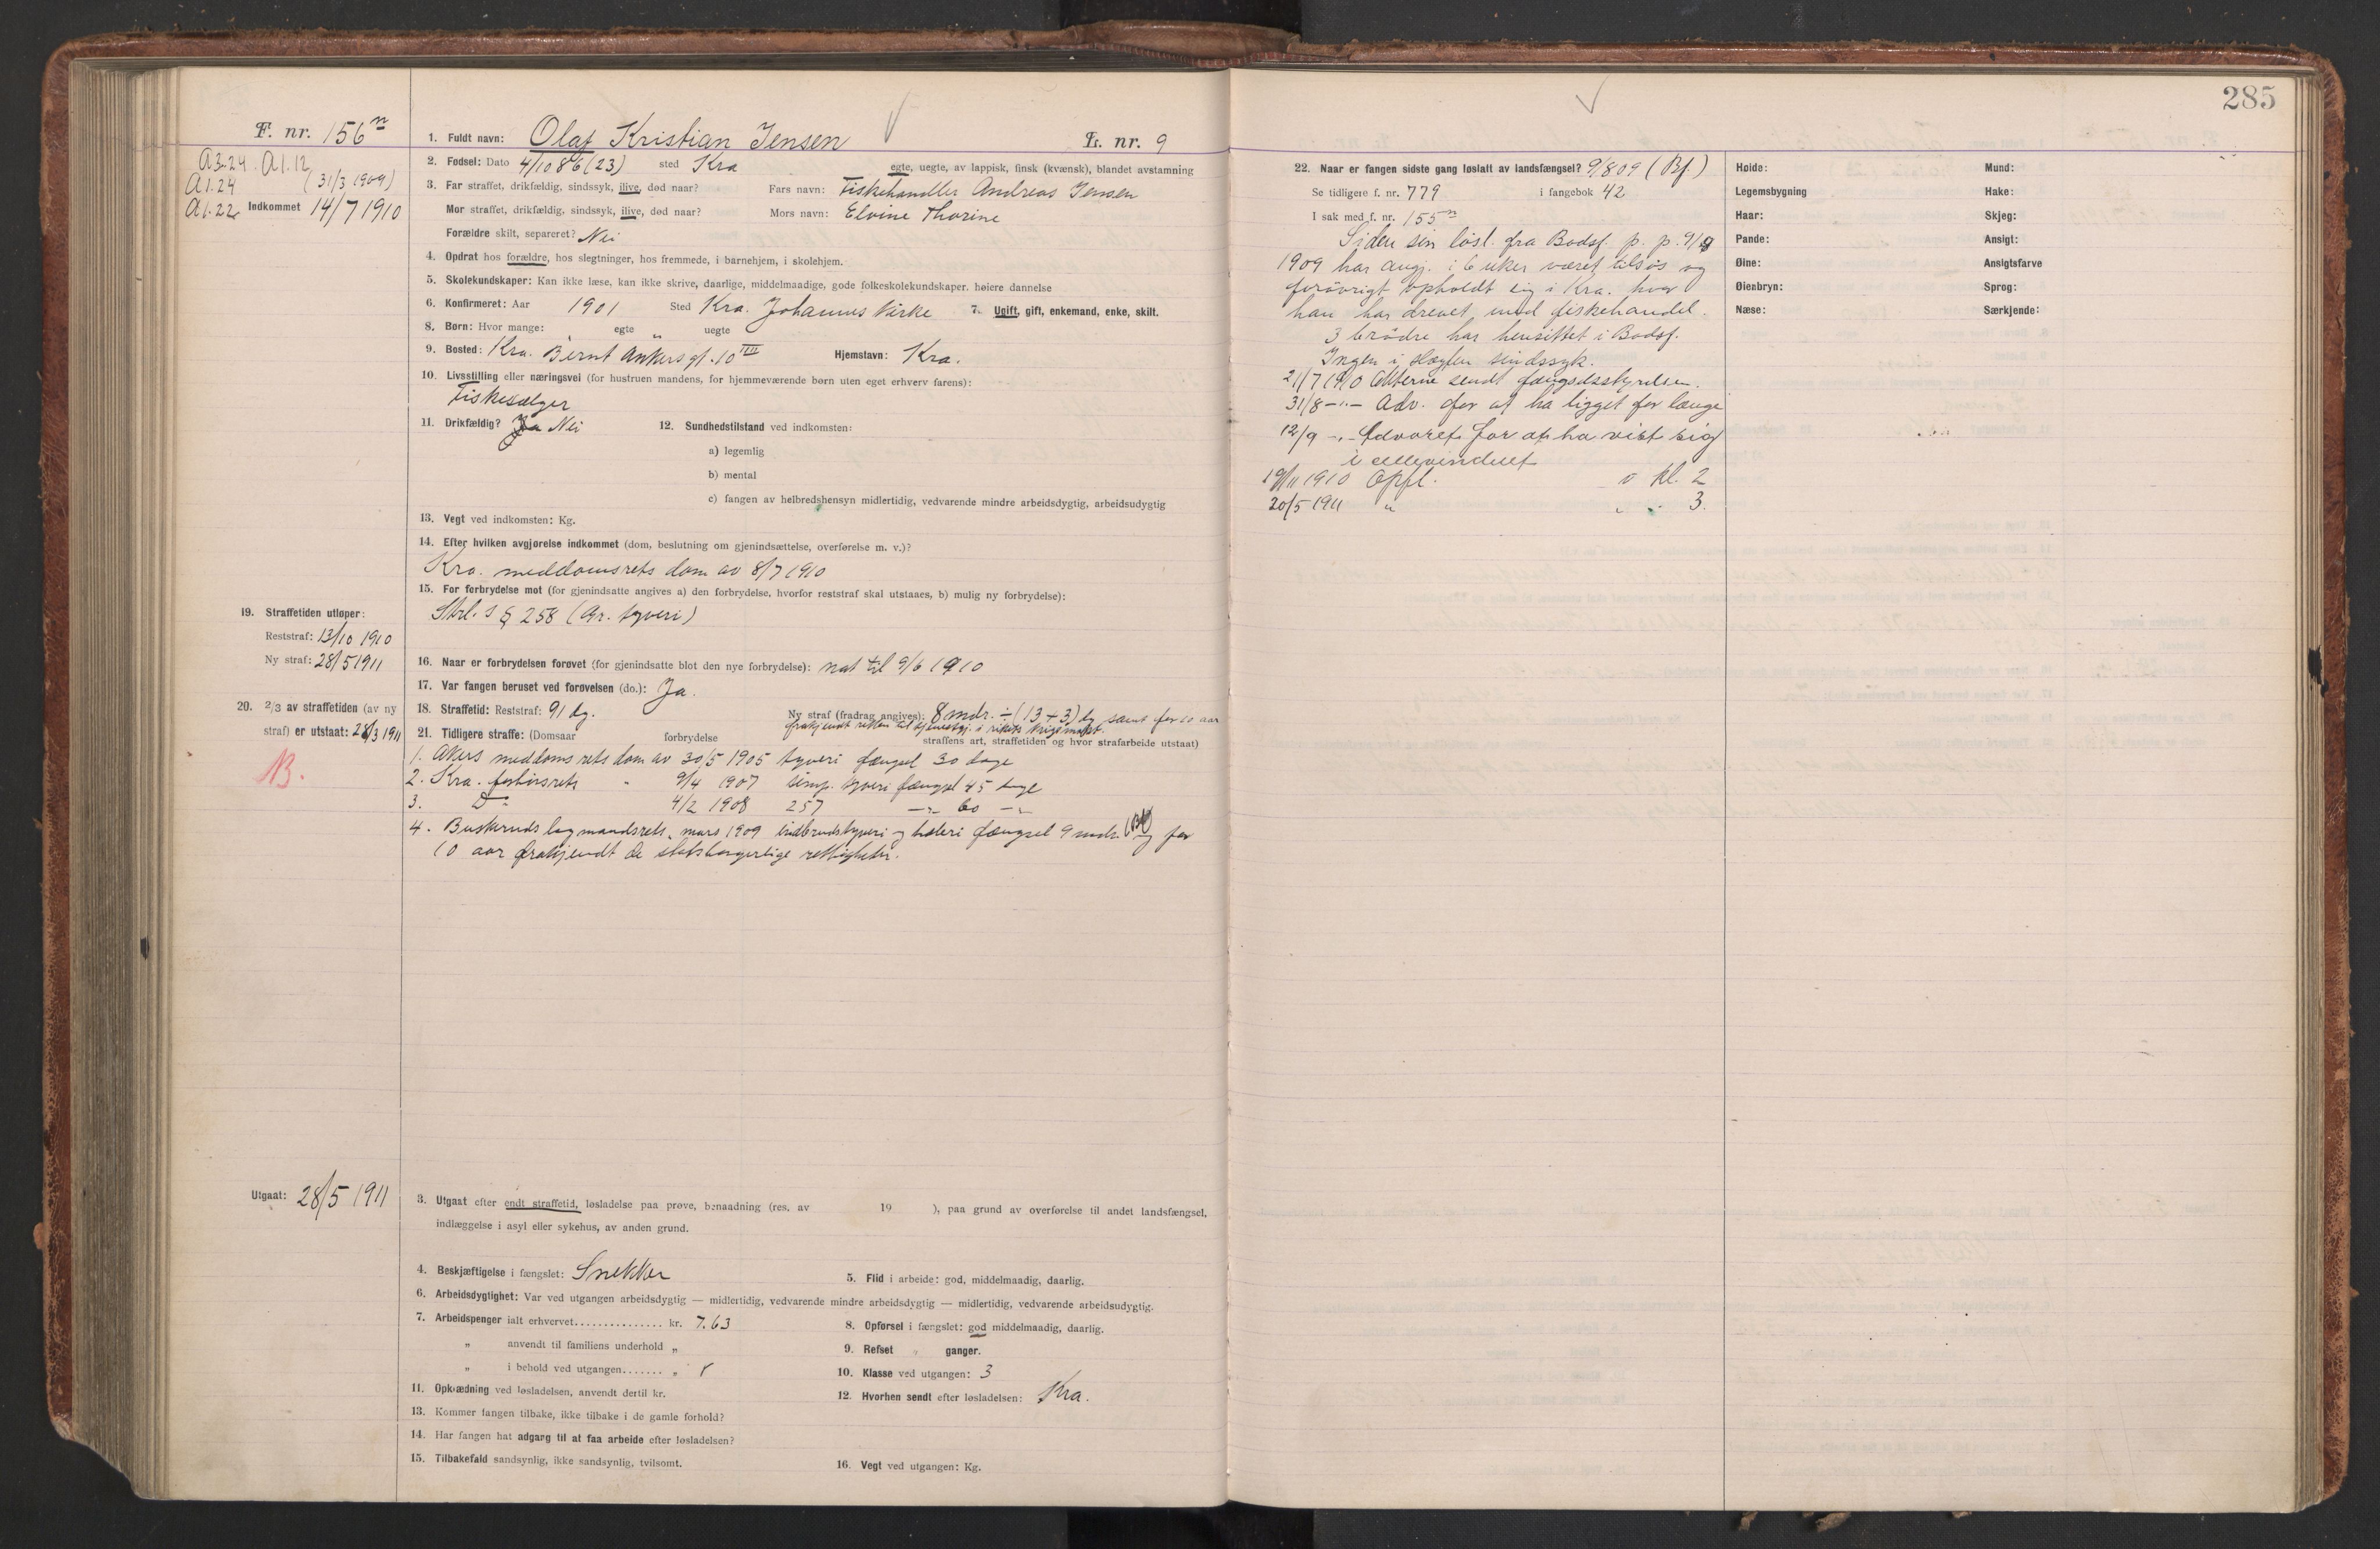 285
F. nr. 156n
1. Fuldt navn: Olaf Kristian Jensen L. nr. 9
A3.24. A1.12
A1.24 (31/3 1909)
A1.22 Indkommet 14/7 1910
2. Fødsel: Dato 4/10 86 (23) sted Kra egte, uegte, av lappisk, finsk (kvænsk), blandet avstamning
3. Far straffet, drikfældig, sindssyk, ilive, død naar? Fars navn: Fiskehandler Andreas Jensen
Mor straffet, drikfældig, sindssyk, ilive, død naar? Mors navn: Elvine Thorine
Forældre skilt, separeret? Nei
4. Opdrat hos forældre, hos slegtninger, hos fremmede, i barnehjem, i skolehjem.
5. Skolekundskaper: Kan ikke læse, kan ikke skrive, daarlige, middelmaadige, gode folkeskolekundskaper. høiere dannelse
6. Konfirmeret: Aar 1901 Sted Kra. Johannes Kirke 7. Ugift, gift, enkemand, enke, skilt.
8. Børn: Hvor mange: egte " uegte
9. Bosted: Kra. Bernt Ankers gt. 10 III Hjemstavn: Kra.
10. Livsstilling eller næringsvei (for hustruen mandens, for hjemmeværende børn uten eget erhverv farens):
Fiskesælger
11. Drikfældig? Ja Nei 12. Sundhedstilstand ved indkomsten:
a) legemlig
b) mental
c) fangen av helbredshensyn midlertidig, vedvarende mindre arbeidsdygtig, arbeidsudygtig
13. Vegt ved indkomsten: Kg.
14. Efter hvilken avgjørelse indkommet (dom, beslutning om gjenindsættelse, overførelse m. v.)?
Kra. meddomsrets dom av 8/7 1910
15. For forbrydelse mot (for gjenindsatte angives a) den forbrydelse, hvorfor reststraf skal utstaaes, b) mulig ny forbrydelse):
Strl. s § 258 (Gr. tyveri)
19. Straffetiden utløper:
Reststraf: 13/10 1910
Ny straf: 28/5 1911
16. Naar er forbrydelsen forøvet (for gjenindsatte blot den nye forbrydelse): nat til 9/6 1910
17. Var fangen beruset ved forøvelsen (do.): Ja.
20. 2/3 av straffetiden (av ny
straf) er utstaat: 28/3 1911
B.
18. Straffetid: Reststraf: 91 dg. Ny straf (fradrag angives): 8 mdr. ÷ (13 + 3) dg samt for 10 aar
frakjendt retten til tjenestgj. i rikets krigsmakt.
21. Tidligere straffe: (Domsaar forbrydelse straffens art, straffetiden og hvor strafarbeide utstaat)
1. Akers meddomsrets dom av 30/5 1905 tyveri fængsel 30 dage
2. Kra. forhörsrets " 9/4 1907 simp. tyveri fængsel 45 dage
3. Do 4/2 1908 257 -"- 60 -"-
4. Buskeruds lagmandsrets " mars 1909 indbrudstyveri og häleri fængsel 9 mdr. (Bf) og for
10 aar frakjendt de statsborgerlige rettigheter.
Utgaat: 28/5 1911
3. Utgaat efter endt straffetid, løsladelse paa prøve, benaadning (res. av 19 ), paa grund av overførelse til andet landsfængsel,
indlæggelse i asyl eller sykehus, av anden grund.
4. Beskjæftigelse i fængslet: Snekker 5. Flid i arbeide: god, middelmaadig, daarlig.
6. Arbeidsdygtighet: Var ved utgangen arbeidsdygtig — midlertidig, vedvarende mindre arbeidsdygtig — midlertidig, vedvarende arbeidsudygtig.
7. Arbeidspenger ialt erhvervet............... kr. 7.63 8. Opførsel i fængslet: god middelmaadig, daarlig.
" anvendt til familiens underhold " 9. Refset " ganger.
" i behold ved utgangen....... " 10. Klasse ved utgangen: 3
11. Opklædning ved løsladelsen, anvendt dertil kr. 12. Hvorhen sendt efter løsladelsen: Kra.
13. Kommer fangen tilbake, ikke tilbake i de gamle forhold?
14. Har fangen hat adgang til at faa arbeide efter løsladelsen?
15. Tilbakefald sandsynlig, ikke sandsynlig, tvilsomt. 16. Vegt ved utgangen: Kg.
22. Naar er fangen sidste gang løslatt av landsfængsel? 9/8 09 (Bf.)
Se tidligere f. nr. 779 i fangebok 42
I sak med f. nr. 155n
Siden sin løsl. fra Bodsf. p. p. 9/8
1909 har angj. i 6 uker været tilsös og
forövrigt opholdt sig i Kra. hvor
han har drevet med fiskehandel.
3 brödre har hensittet i Bodsf.
Ingen i slægten sindssyk.
21/7 1910 Akterne sendt fængselsstyrelsen.
31/8 -"- Adv. for at ha ligget for længe
12/9 -"- Advaret for at ha vist sig
i cellevinduet
19/11 1910 Opfl. v kl. 2
20/5 1911 " " " 3.
Høide: Mund:
Legemsbygning Hake:
Haar: Skjeg:
Pande: Ansigt:
Øine: Ansigtsfarve
Øienbryn: Sprog:
Næse: Særkjende: